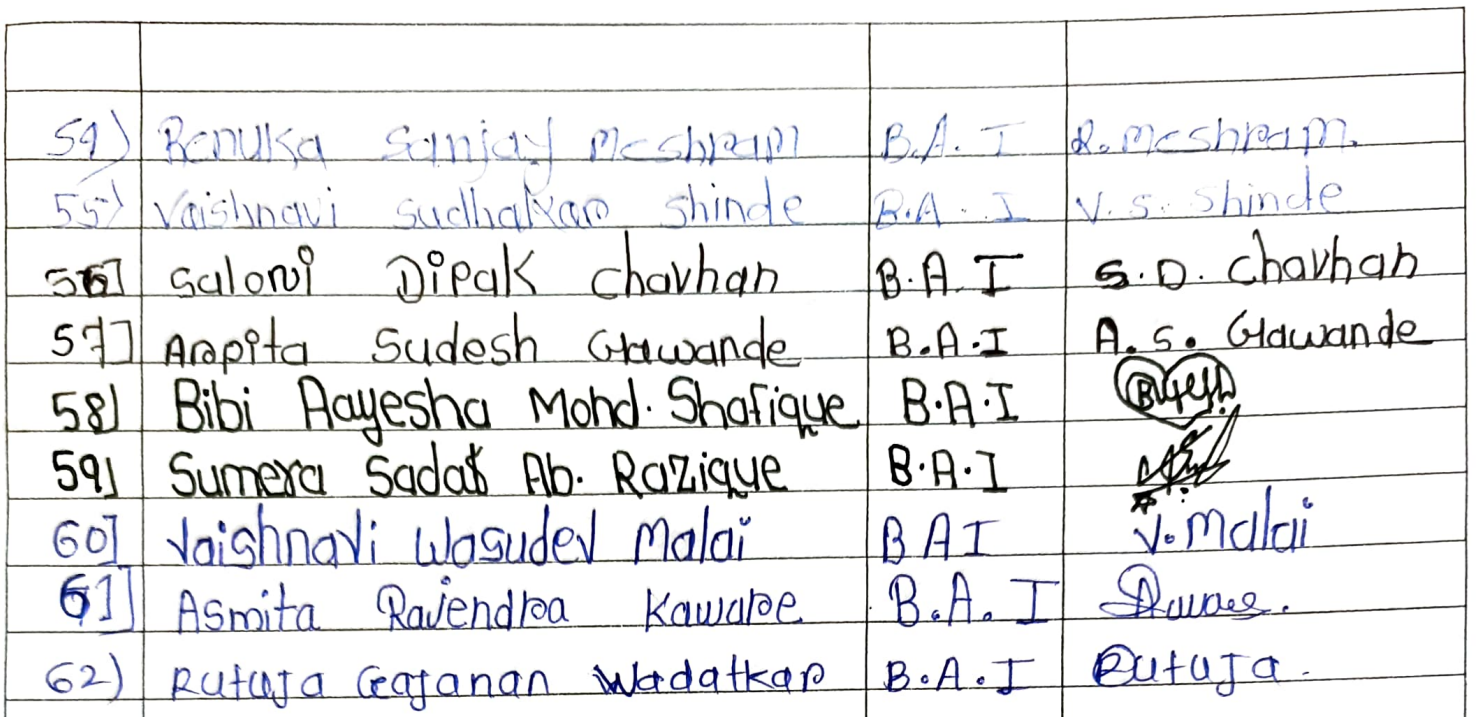 54) Renuka Sanjay Meshram B.A. I R. Meshram.
55) Vaishnavi Sudhakar Shinde B.A. I V. S. Shinde
56] Saloni Dipak Chavhan B.A. I S.D. Chavhan
57] Arpita Sudesh Gawande B.A.I A. S. Gawande
58] Bibi Aayesha Mohd. Shafique B.A.I
59] Sumera Sadaf Ab. Razique B.A.I
60] Vaishnavi Wasudev Malai B A I V. Malai
61] Asmita Rajendra Kaware B.A. I
62) Rutuja Gajanan Wadatkar B.A.I Rutuja.